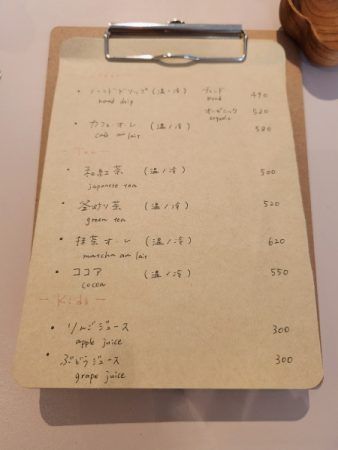 ・ハンドドリップ (温・冷) ブレンド 490
hand drip blend
オーガニック 520
organic
・カフェオレ (温/冷) 580
café au lait
- Tea -
・和紅茶 (温/冷) 500
japanese tea
・釜炒り茶 (温/冷) 520
green tea
・抹茶オーレ (温/冷) 620
matcha au lait
・ココア (温/冷) 550
cocoa
- Kids -
・りんごジュース 300
apple juice
・ぶどうジュース 300
grape juice